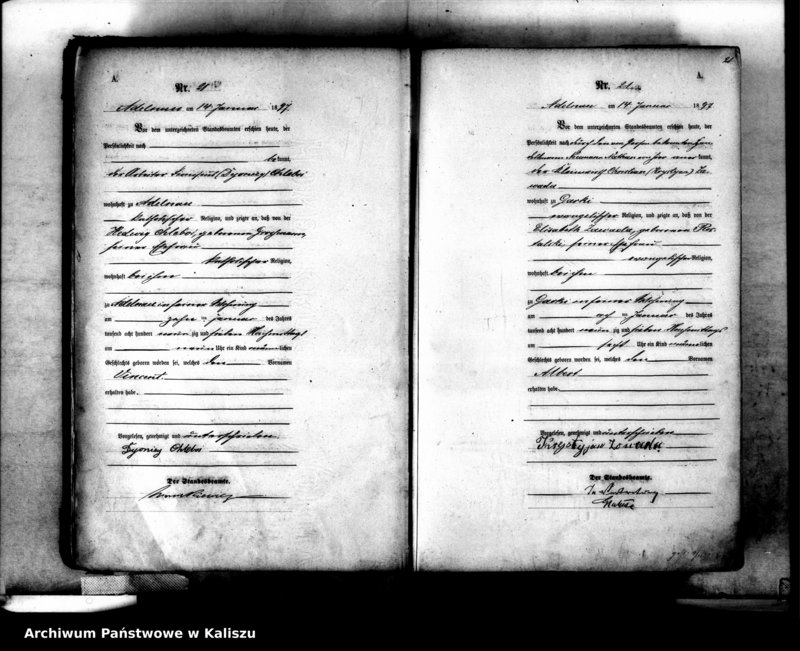 A.
Nr. 21
Adelnau am 14 Januar 1897
Vor dem unterzeichneten Standesbeamten erschien heute, der
Persönlichkeit nach
be kannt,
der Arbeiter
wohnhaft zu Adelnau
katholischer Religion, und zeigte an, daß von der
Hedwig geborenen
seiner Ehefrau
katholischer Religion,
wohnhaft bei ihm
zu Adelnau in seiner Wohnung
am zehn ten Januar des Jahres
tausend acht hundert neun zig und sieben Nachmittags
um neun Uhr ein Kind männlichen
Geschlechts geboren worden sei, welches den Vornamen
Vincent
erhalten habe.
Vorgelesen, genehmigt und unterschrieben
Der Standesbeamte.
21
A.
Nr. 22
Adelnau am 14 Januar 1897
Vor dem unterzeichneten Standesbeamten erschien heute, der
Persönlichkeit nach durch
kannt,
der
wohnhaft zu Garki
evangelischer Religion, und zeigte an, daß von der
Elisabeth Zawada, geborenen
seiner Ehefrau
evangelischer Religion,
wohnhaft bei ihm
zu Garki in seiner Wohnung
am ach ten Januar des Jahres
tausend acht hundert neun zig und sieben
um sechs Uhr ein Kind männlichen
Geschlechts geboren worden sei, welches den Vornamen
Albert
erhalten habe.
Vorgelesen, genehmigt und unterschrieben
Der Standesbeamte.
In Vertretung
Archiwum Państwowe w Kaliszu